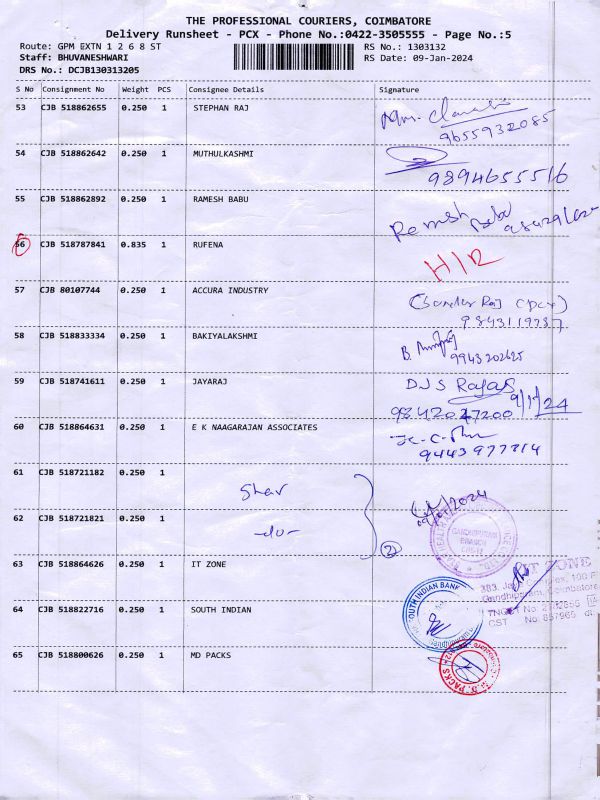 THE PROFESSIONAL COURIERS, COIMBATORE
Delivery Runsheet - PCX - Phone No.:0422-3505555 - Page No.:5
Route: GPM EXTN 1 2 6 8 ST
RS No.: 1303132
Staff: BHUVANESHWARI
RS Date: 09-Jan-2024
DRS No.: DCJB130313205
S No Consignment No Weight PCS Consignee Details Signature
53 CJB 518862655 0.250 1 STEPHAN RAJ
9655932085
54 CJB 518862642 0.250 1 MUTHULKASHMI
9894655516
55 CJB 518862892 0.250 1 RAMESH BABU
Ramesh Babu
56 CJB 518787841 0.835 1 RUFENA
H/R
57 CJB 80107744 0.250 1 ACCURA INDUSTRY
58 CJB 518833334 0.250 1 BAKIYALAKSHMI
9943202625
59 CJB 518741611 0.250 1 JAYARAJ
DJS Rajas 9/1/24
9842027200
60 CJB 518864631 0.250 1 E K NAAGARAJAN ASSOCIATES
9443977714
61 CJB 518721182 0.250 1
Star
62 CJB 518721821 0.250 1
-do-
2
GANDHIPURAM
BRANCH
63 CJB 518864626 0.250 1 IT ZONE
IT ZONE
64 CJB 518822716 0.250 1 SOUTH INDIAN
SOUTH INDIAN BANK
65 CJB 518800626 0.250 1 MD PACKS
M.D. PACKS